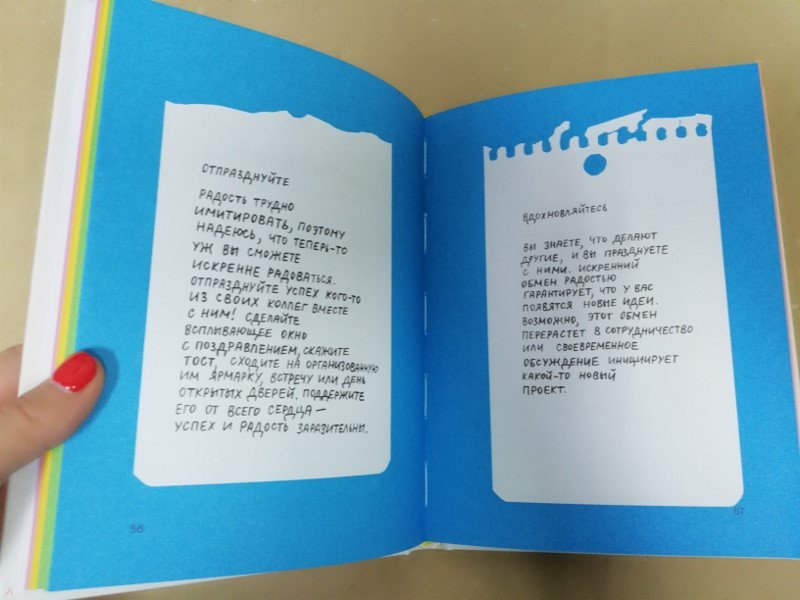 ОТПРАЗДНУЙТЕ
РАДОСТЬ ТРУДНО
ИМИТИРОВАТЬ, ПОЭТОМУ
НАДЕЮСЬ, ЧТО ТЕПЕРЬ-ТО
УЖ ВЫ СМОЖЕТЕ
ИСКРЕННЕ РАДОВАТЬСЯ.
ОТПРАЗДНУЙТЕ УСПЕХ КОГО-ТО
ИЗ СВОИХ КОЛЛЕГ ВМЕСТЕ
С НИМ! СДЕЛАЙТЕ
ВСПЛЫВАЮЩЕЕ ОКНО
С ПОЗДРАВЛЕНИЕМ, СКАЖИТЕ
ТОСТ, СХОДИТЕ НА ОРГАНИЗОВАННУЮ
ИМ ЯРМАРКУ, ВСТРЕЧУ ИЛИ ДЕНЬ
ОТКРЫТЫХ ДВЕРЕЙ. ПОДДЕРЖИТЕ
ЕГО ОТ ВСЕГО СЕРДЦА —
УСПЕХ И РАДОСТЬ ЗАРАЗИТЕЛЬНЫ.
56
ВДОХНОВЛЯЙТЕСЬ
ВЫ ЗНАЕТЕ, ЧТО ДЕЛАЮТ
ДРУГИЕ, И ВЫ ПРАЗДНУЕТЕ
С НИМИ. ИСКРЕННИЙ
ОБМЕН РАДОСТЬЮ
ГАРАНТИРУЕТ, ЧТО У ВАС
ПОЯВЯТСЯ НОВЫЕ ИДЕИ.
ВОЗМОЖНО, ЭТОТ ОБМЕН
ПЕРЕРАСТЕТ В СОТРУДНИЧЕСТВО
ИЛИ СВОЕВРЕМЕННОЕ
ОБСУЖДЕНИЕ ИНИЦИИРУЕТ
КАКОЙ-ТО НОВЫЙ
ПРОЕКТ.
57